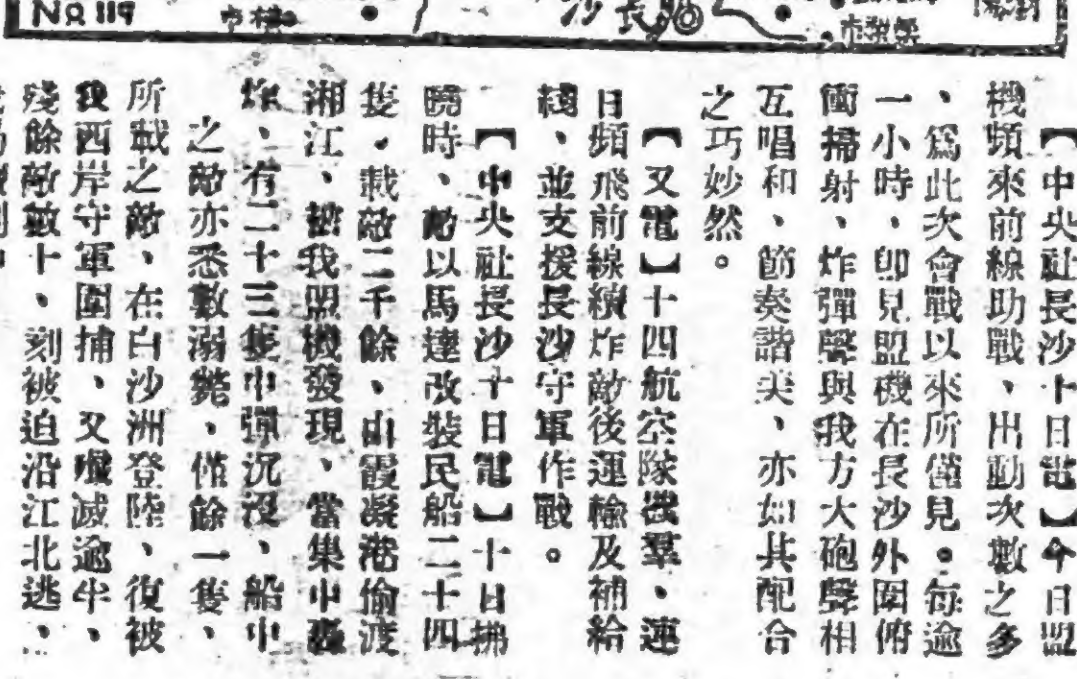 No 119
長沙
【中央社長沙十日電】今日盟
機頻來前線助戰、出動次數之多
、爲此次會戰以來所僅見。每逾
一小時、卽見盟機在長沙外圍俯
衝掃射、炸彈聲與我方大砲聲相
互唱和、節奏諧美、亦如其配合
之巧妙然。
【又電】十四航空隊機羣、連
日頻飛前線續炸敵後運輸及補給
綫、並支援長沙守軍作戰。
【中央社長沙十日電】十日拂
曉時、敵以馬達改裝民船二十四
隻、載敵二千餘、由霞凝港偷渡
湘江、被我盟機發現、當集中轟
炸、有二十三隻中彈沉沒、船中
之敵亦悉數溺斃、僅餘一隻、
所載之敵、在白沙洲登陸、復被
我西岸守軍圍捕、又殲滅逾半、
殘餘敵數十、刻被迫沿江北逃、